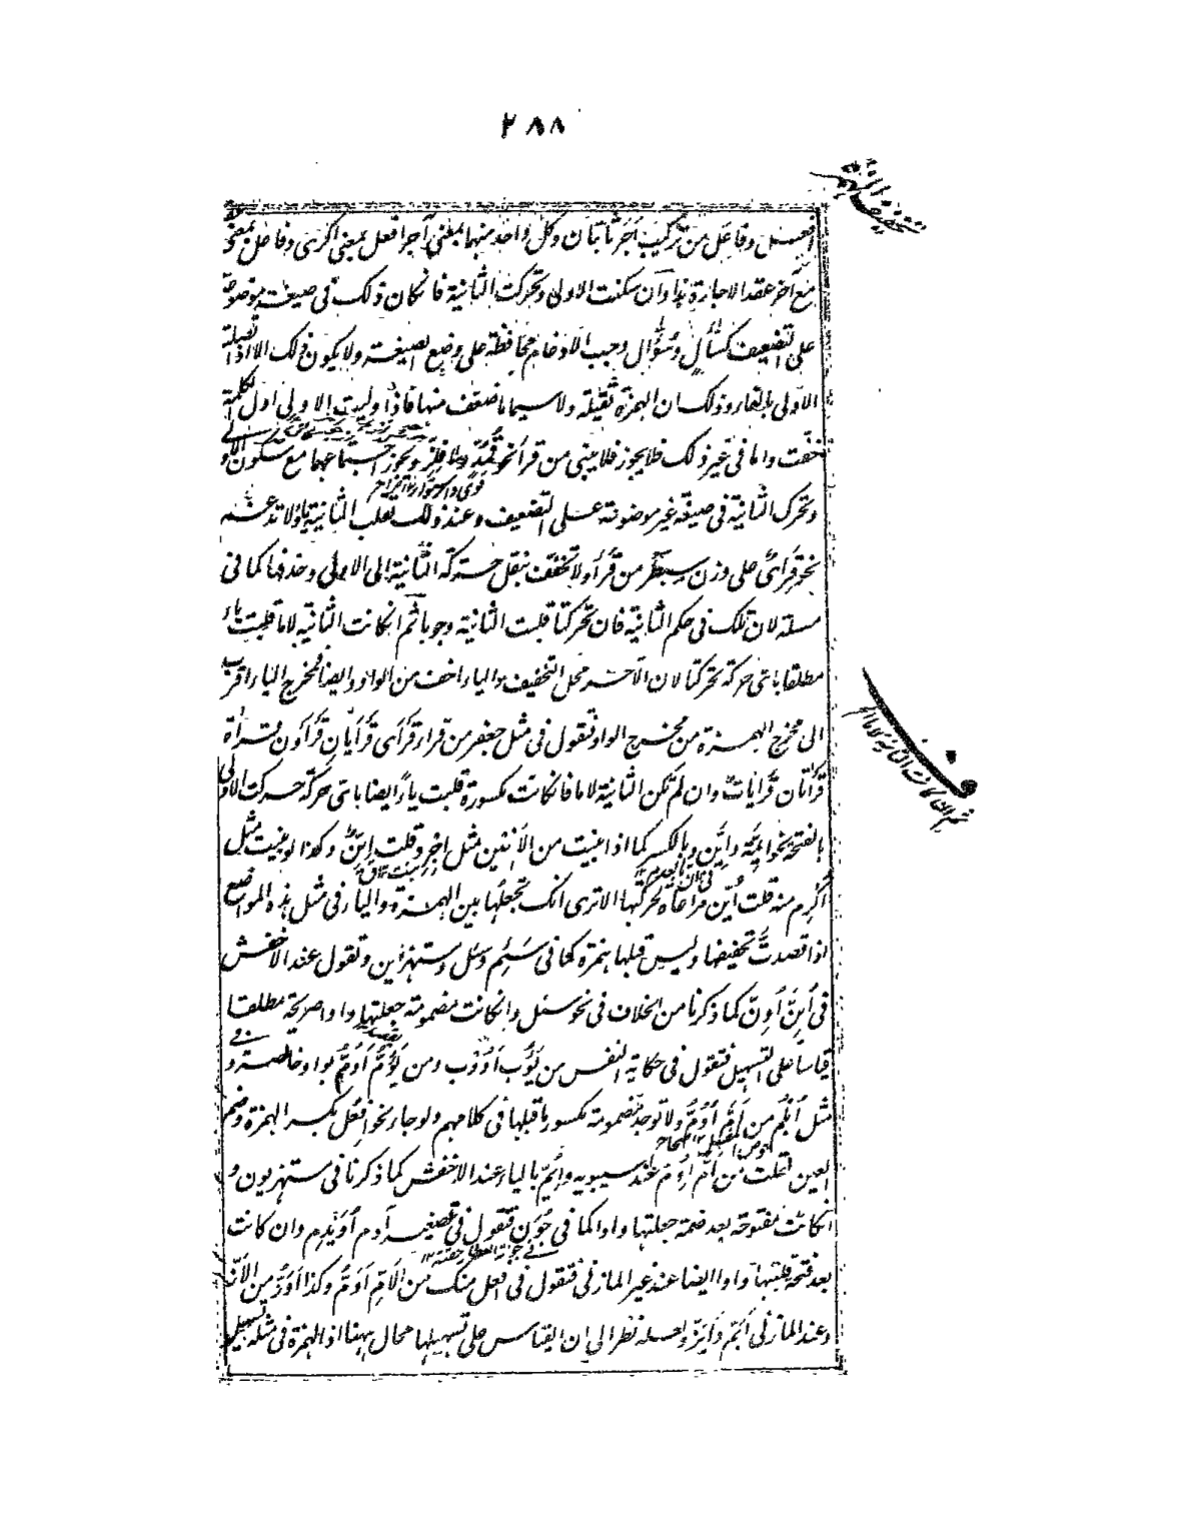 ٢٨٨
تخفيف الهمزة
افعل وفاعل من تركيب اجر ثابتان وكل واحد منهما بمعنى آجر افعل بمعنى اكرى وفاعل بمعنى
مع آخر عقد الاجارة هذا وان سكنت الاولى وتحركت الثانية فان كان ذلك في صيغة موضوعة
على التضعيف كسأّل وسؤّال وجب الادغام محافظة على وضع الصيغة ولا يكون ذلك الا اذا اتصلت
الاولى بالفاء وذلك ان الهمزة ثقيلة ولا سيما ما ضعف منها فاذا وليت الاولى اول الكلمة
خفت واما في غير ذلك فلا يجوز فلا يبنى من قرأ نحو قمد ولا فلز ويجوز اجتماعهما مع سكون الاولى
وتحرك الثانية في صيغة غير موضوعة على التضعيف وعند ذلك تقلب الثانية ياء ولا تدغم
نحو قرأي على وزن سبطر من قرأ ولا تخفف بنقل حركة الثانية الى الاولى وحذفها كما في
مسلة لان تلك في حكم الثانية فان تحركتا قلبت الثانية وجوبا ثم ان كانت الثانية لاما قلبت ياء
مطلقا باى حركة تحركتا لان الآخر محل التخفيف والياء اخف من الواو وايضا فمخرج الياء اقرب
الى مخرج الهمزة من مخرج الواو فتقول في مثل جعفر من قرأ قرأى قرأيان قرأون وقرأاة
قرأاتان قرأيات وان لم تكن الثانية لاما فان كانت مكسورة قلبت ياء ايضا باى حركة حركت الاولى
بالفتحة نحو ايمة واين وبالكسر كما اذا بنيت من الانين مثل اجرد قلت اين وكذا لو بنيت مثل
اكرم منه قلت اين مراعاة لحركتها الا ترى انك تجعلها بين الهمزة والياء في مثل هذه المواضع
اذا قصدت تخفيفها وليس قبلها همزة كما في سئم وسئل ومستهزئين وتقول عند الاخفش
في اين اون كما ذكرنا من الخلاف في نحو سئل وان كانت مضمومة جعلتها واوا صريحة مطلقا
قياسا على التسهيل فتقول في حكاية النفس من يؤب اووب ومن يؤم اوم بواو خالصة وفي
مثل ابلم من ام اوم ولا توجد مضمومة مكسور ما قبلها في كلامهم ولو جاء نحو افعل بكسر الهمزة وضم
العين لقلت من ام اوم عند سيبويه وايم بالياء عند الاخفش كما ذكرنا في مستهزيون و
ان كانت مفتوحة بعد ضمة جعلتها واوا كما في جون فتقول في تصغير آدم اويدم وان كانت
بعد فتحة قلبتها واوا ايضا عند غير المازني فتقول في افعل منك من الام اوم وكذا اوز من الاز
وعند المازني ايم وايز ولعله نظر الى ان القياس على تسهيلها محال ههنا اذ الهمزة في مثله تسهيل